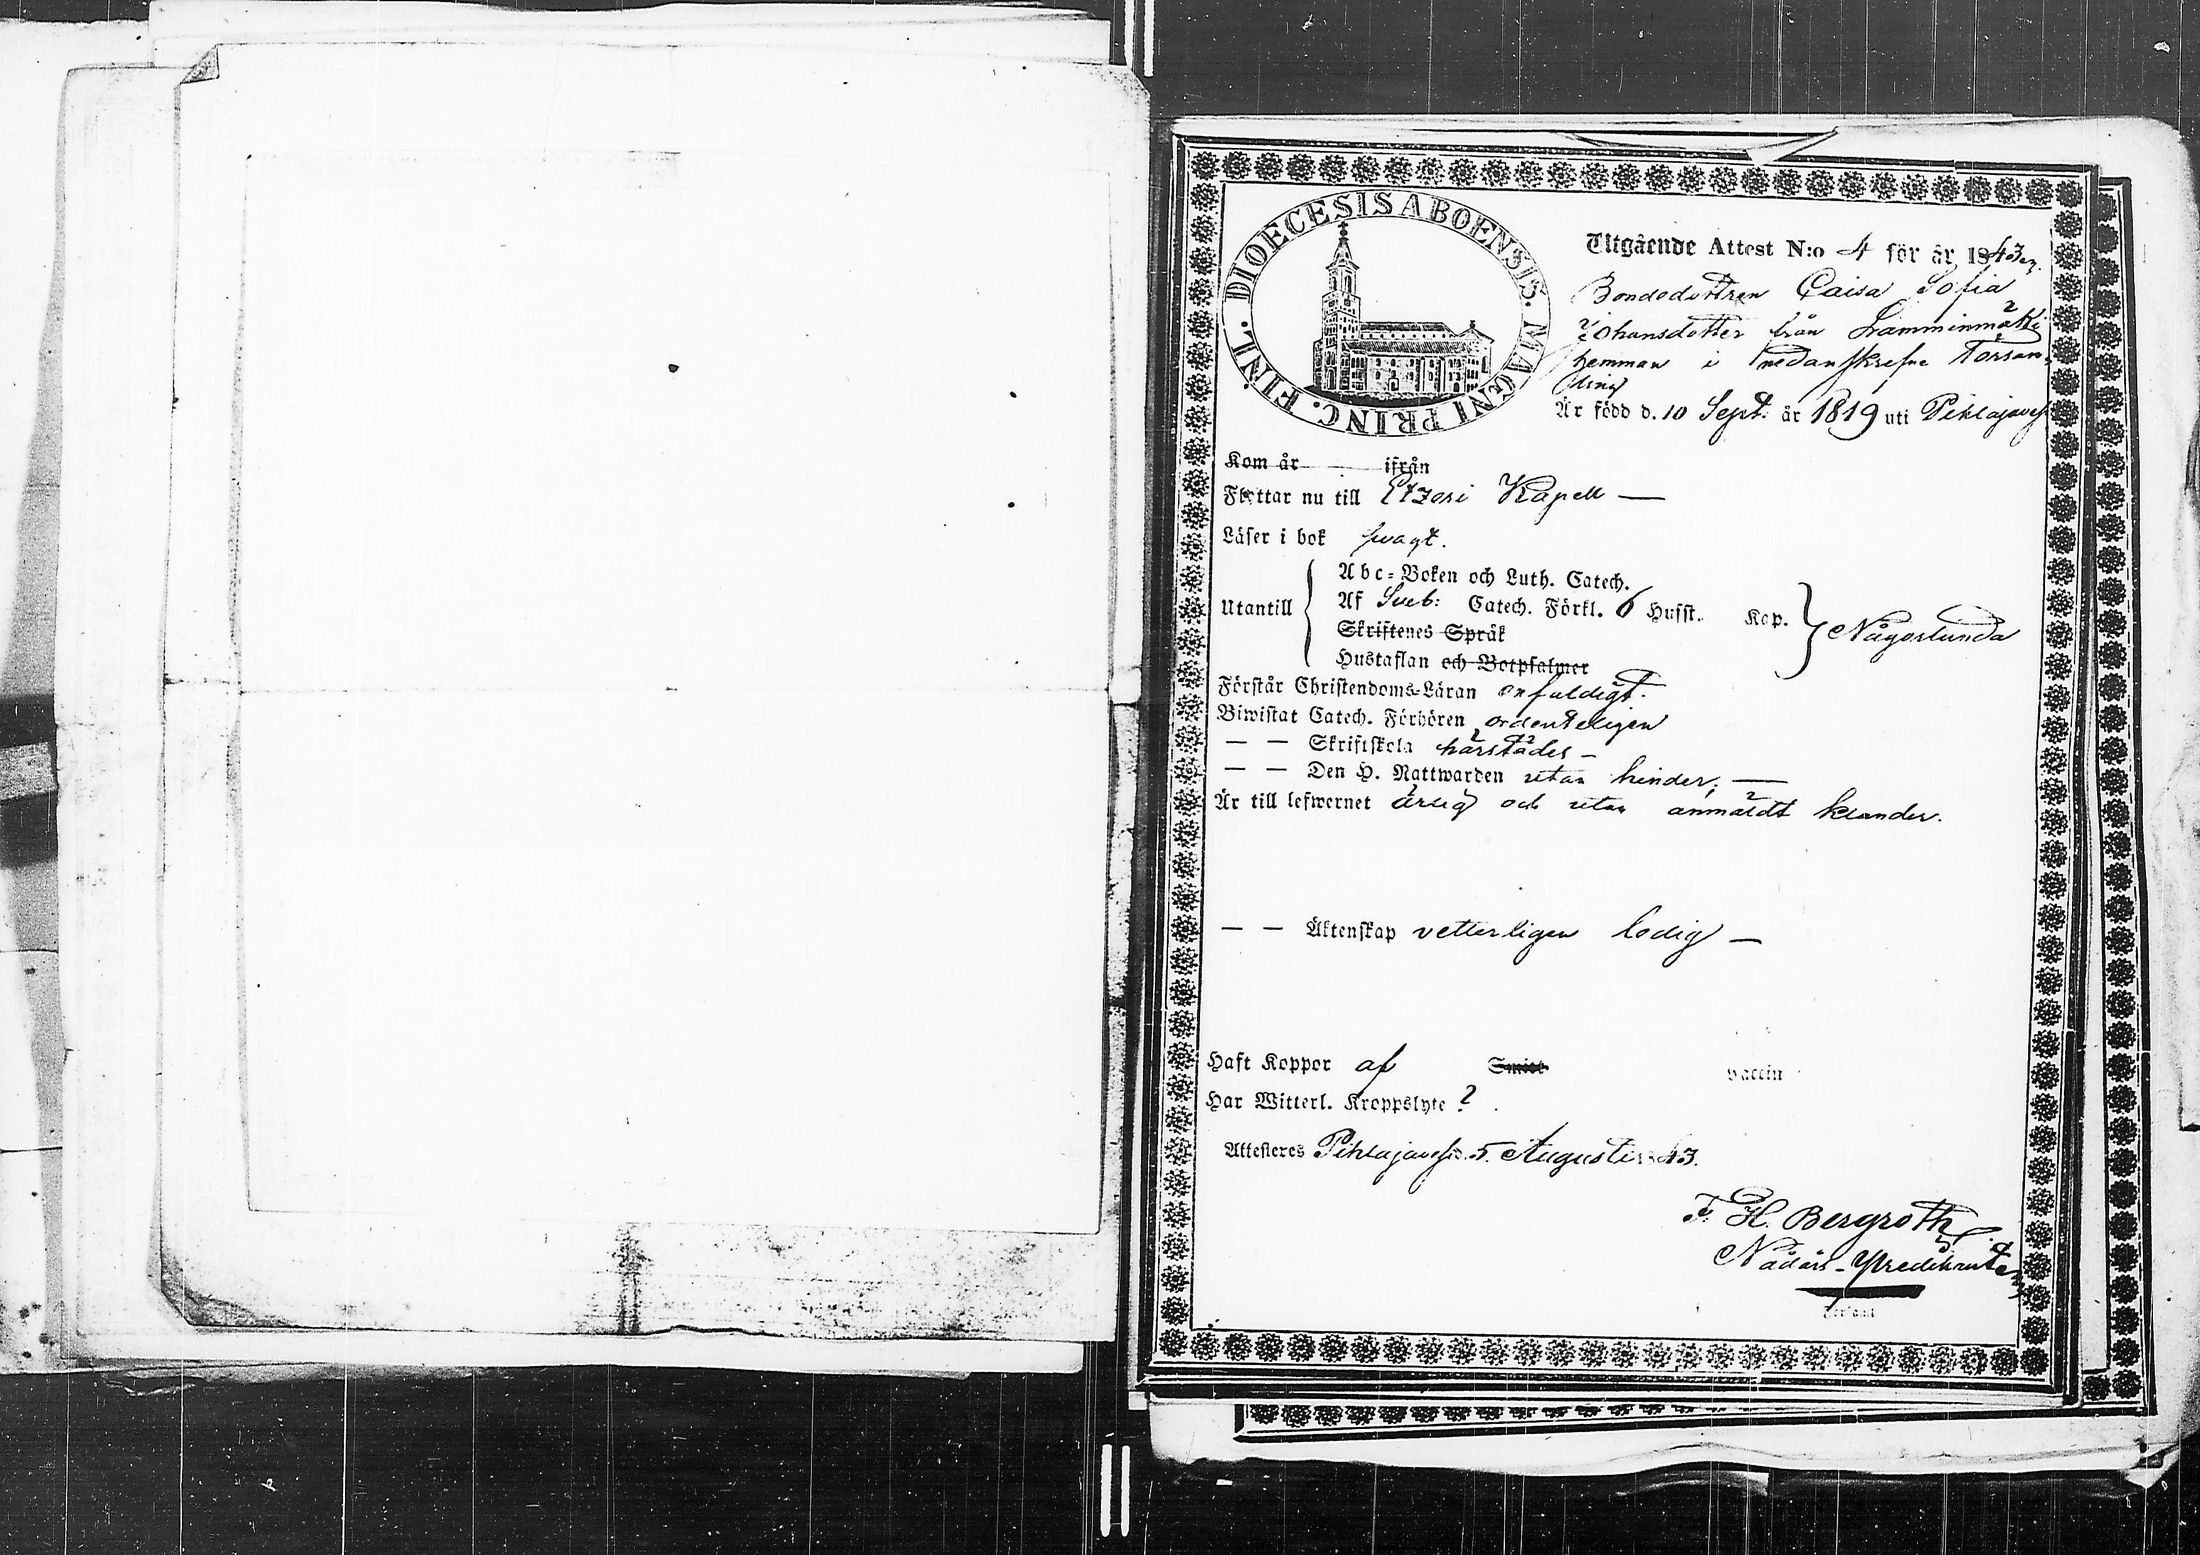 DIOECESIS ABOENSIS. MAGNI PRINC. FINL.
Utgående Attest N:o 4 för år 1843
Bondedottren Caisa Sofia
Johansdotter från Lamminmäki
hemman i nedanskrefne Försam-
ling
Är född d. 10 Sept. år 1819 uti Pihlajavesi
Kom år ifrån
Flyttar nu till Etzeri Kapell —
Läser i bok swagt.
Utantill
Abc-Boken och Luth. Catech.
Af Sveb: Catech. Förkl. 6 Hufst. Kap.
Skriftenes Språk
Någorlunda
Hustaflan och Botpsalmer
Förstår Christendoms-Läran enfaldigt.
Biwistat Catech. Förhören ordenteligen
— — Skriftskola härstädes —
— — Den H. Nattwarden utan hinder; —
Är till lefwernet ärlig och utan anmäldt klander.
— — Äktenskap vetterligen ledig —
Haft Koppor af Smitt Vaccin
Har Witterl. Kroppslyte ?
Attesteras Pihlajavesi d. 5 Augusti 1843.
F. H. Bergroth
Nådårs-Predikant